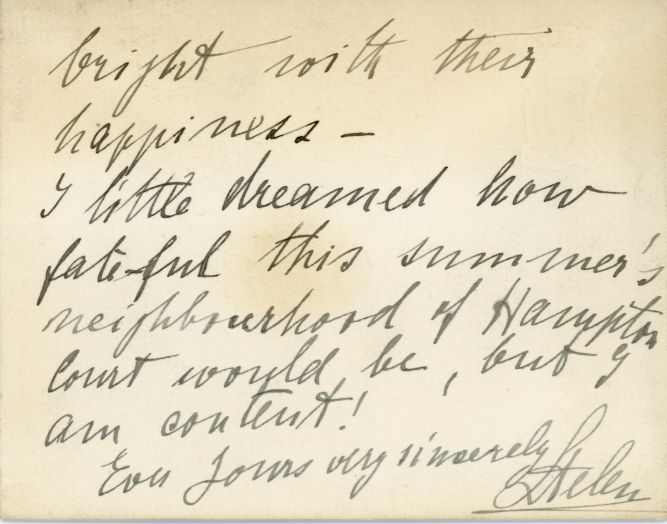 bright with their
happiness –
I little dreamed how
fate-ful this summer's
neighbourhood of Hampton
Court would be, but I
am content!
Ever Yours very sincerely
Helen